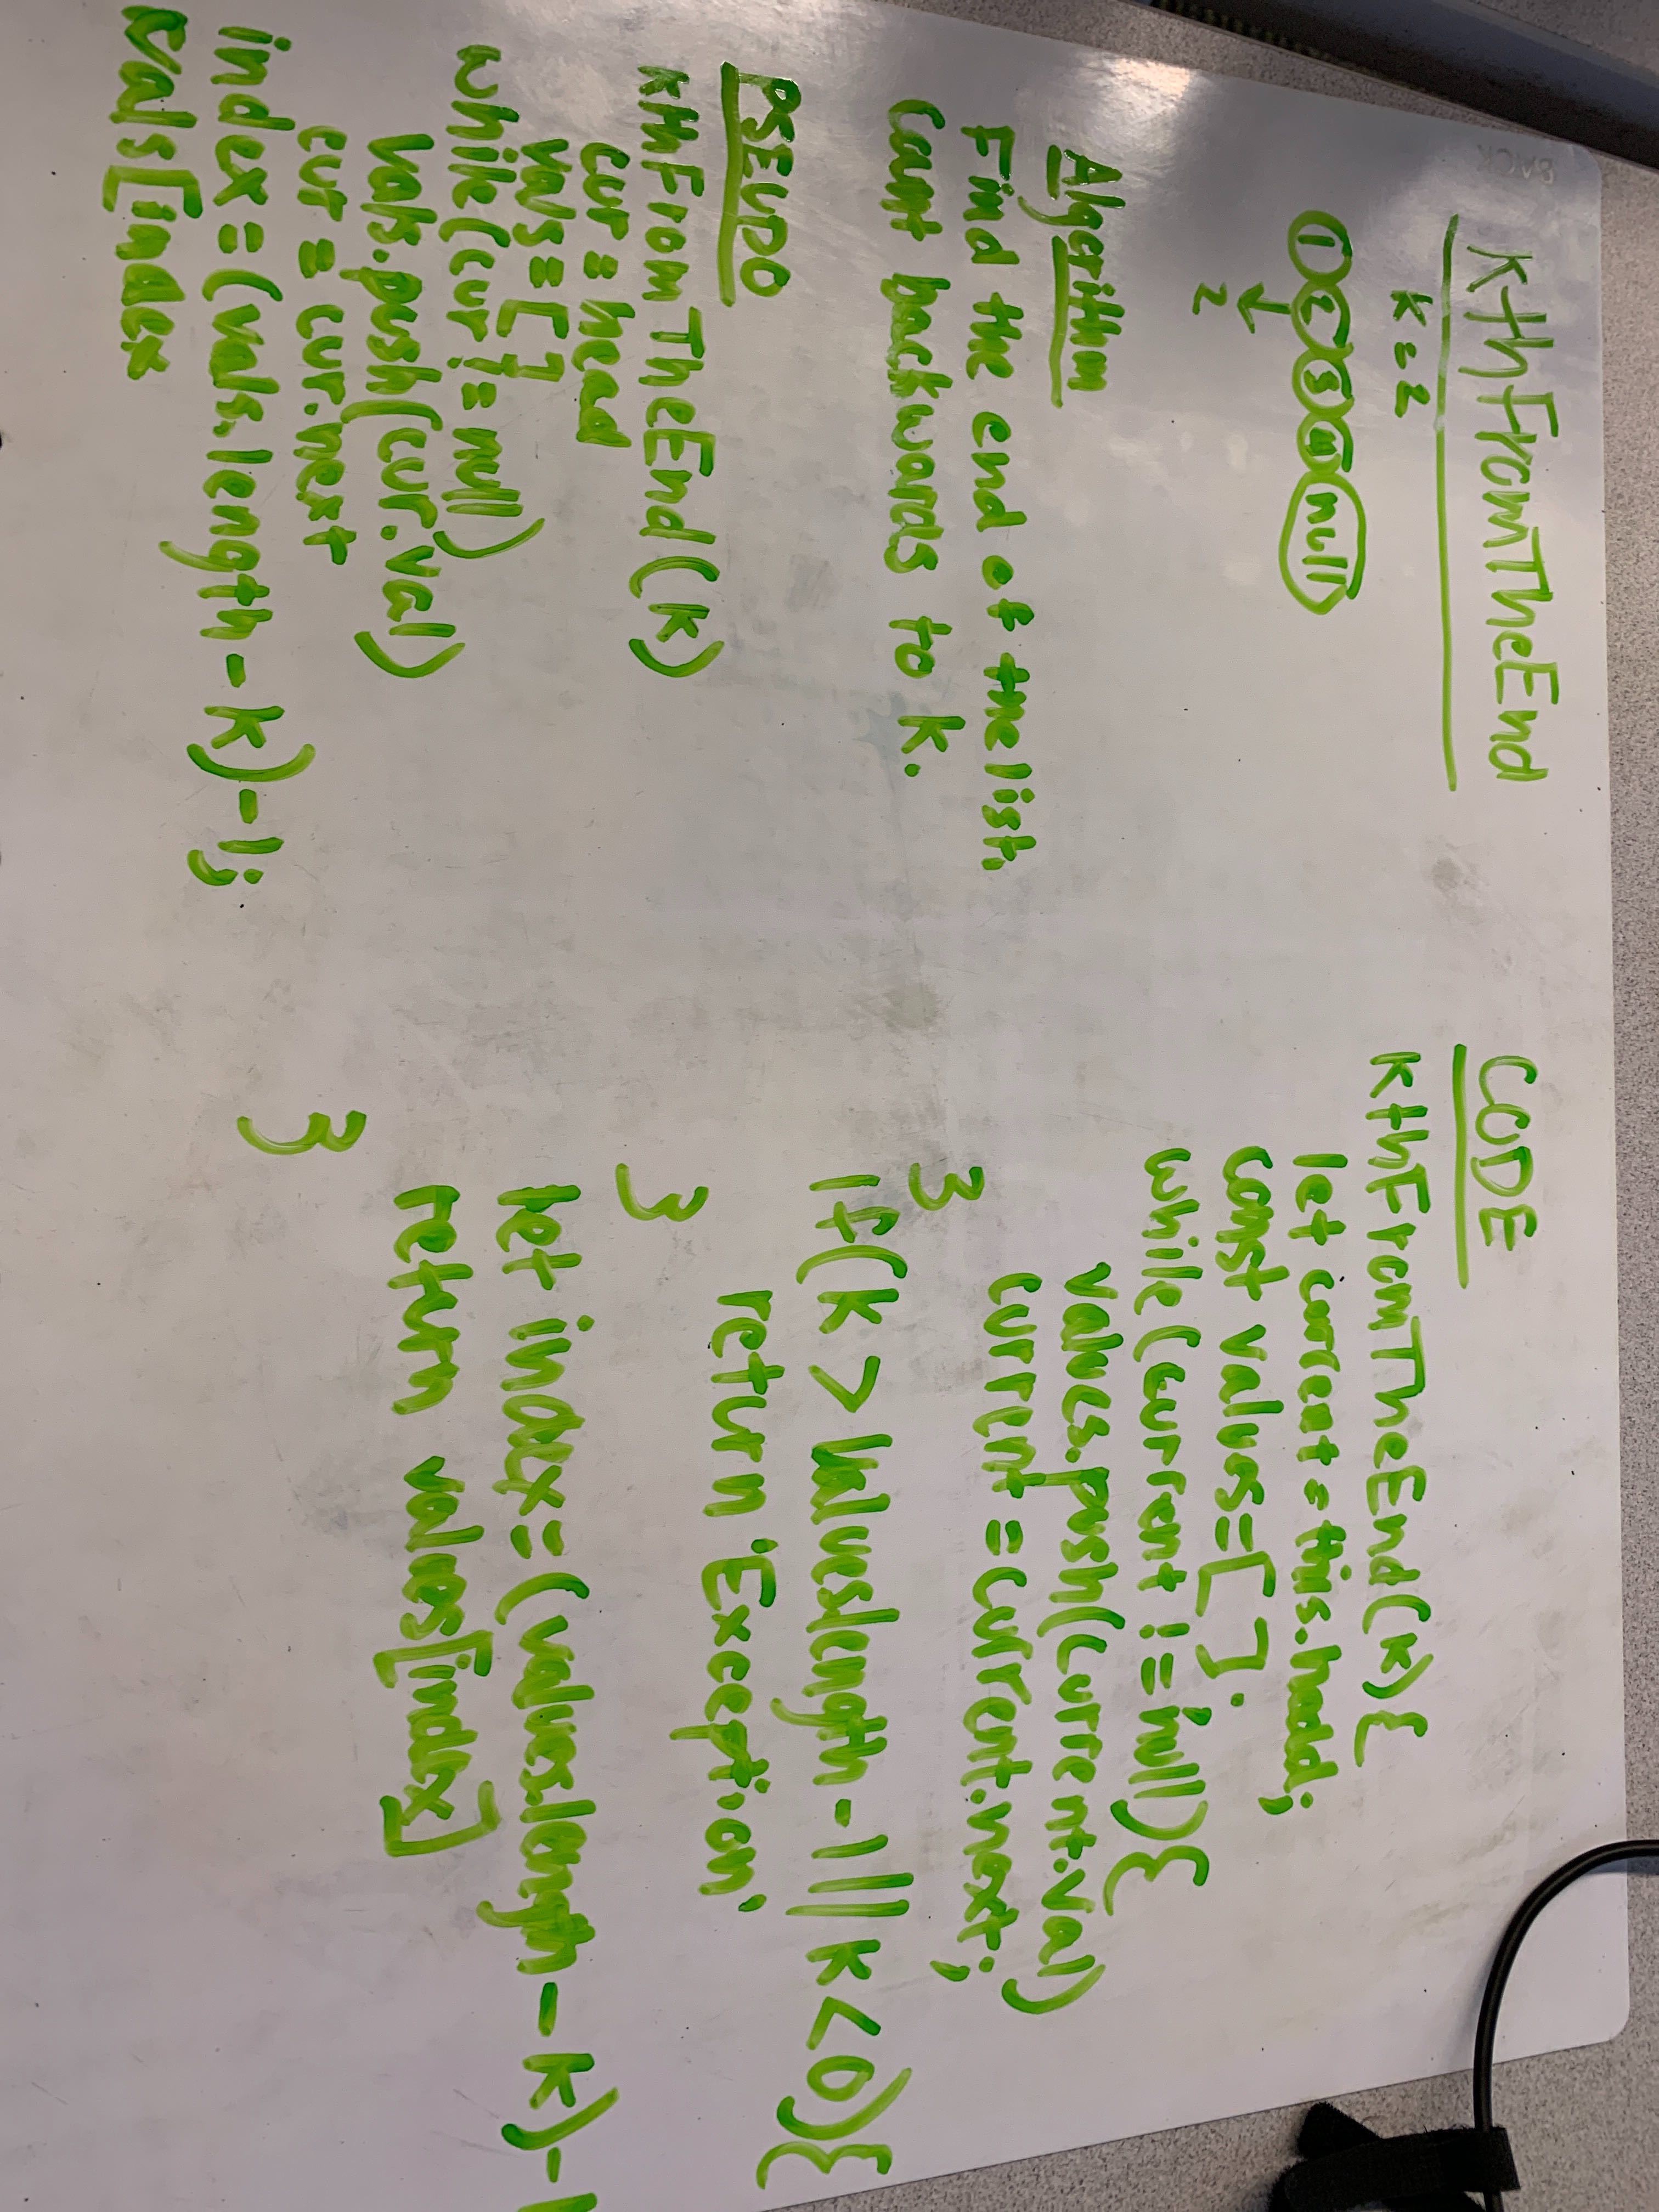 KthFromTheEnd
K = 2
1 2 3 4 null
2
Algorithm
Find the end of the list.
Count backwards to k.
PSEUDO
KthFromTheEnd(k)
cur = head
vals = [ ]
while(cur != null)
vals.push(cur.val)
cur = cur.next
index = (vals.length - k) - 1;
vals[index
CODE
KthFromTheEnd(k){
let current = this.head;
const values = [ ].
while(current != null){
values.push(current.val)
current = current.next;
}
if(k > values.length - 1 || k < 0){
return 'Exception'
}
let index = (values.length - k) - 1
return values[index]
}